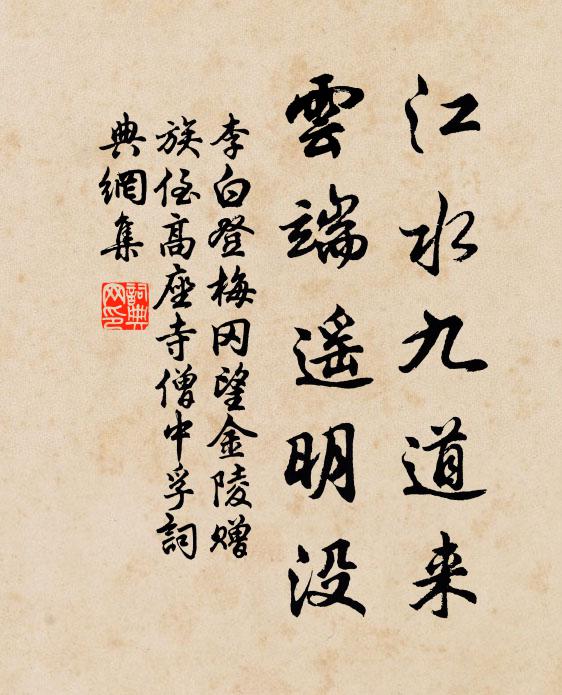 江水九道来
雲端遥明没
李白登梅冈望金陵赠
族侄高座寺僧中孚詞
典網集
詞典網印